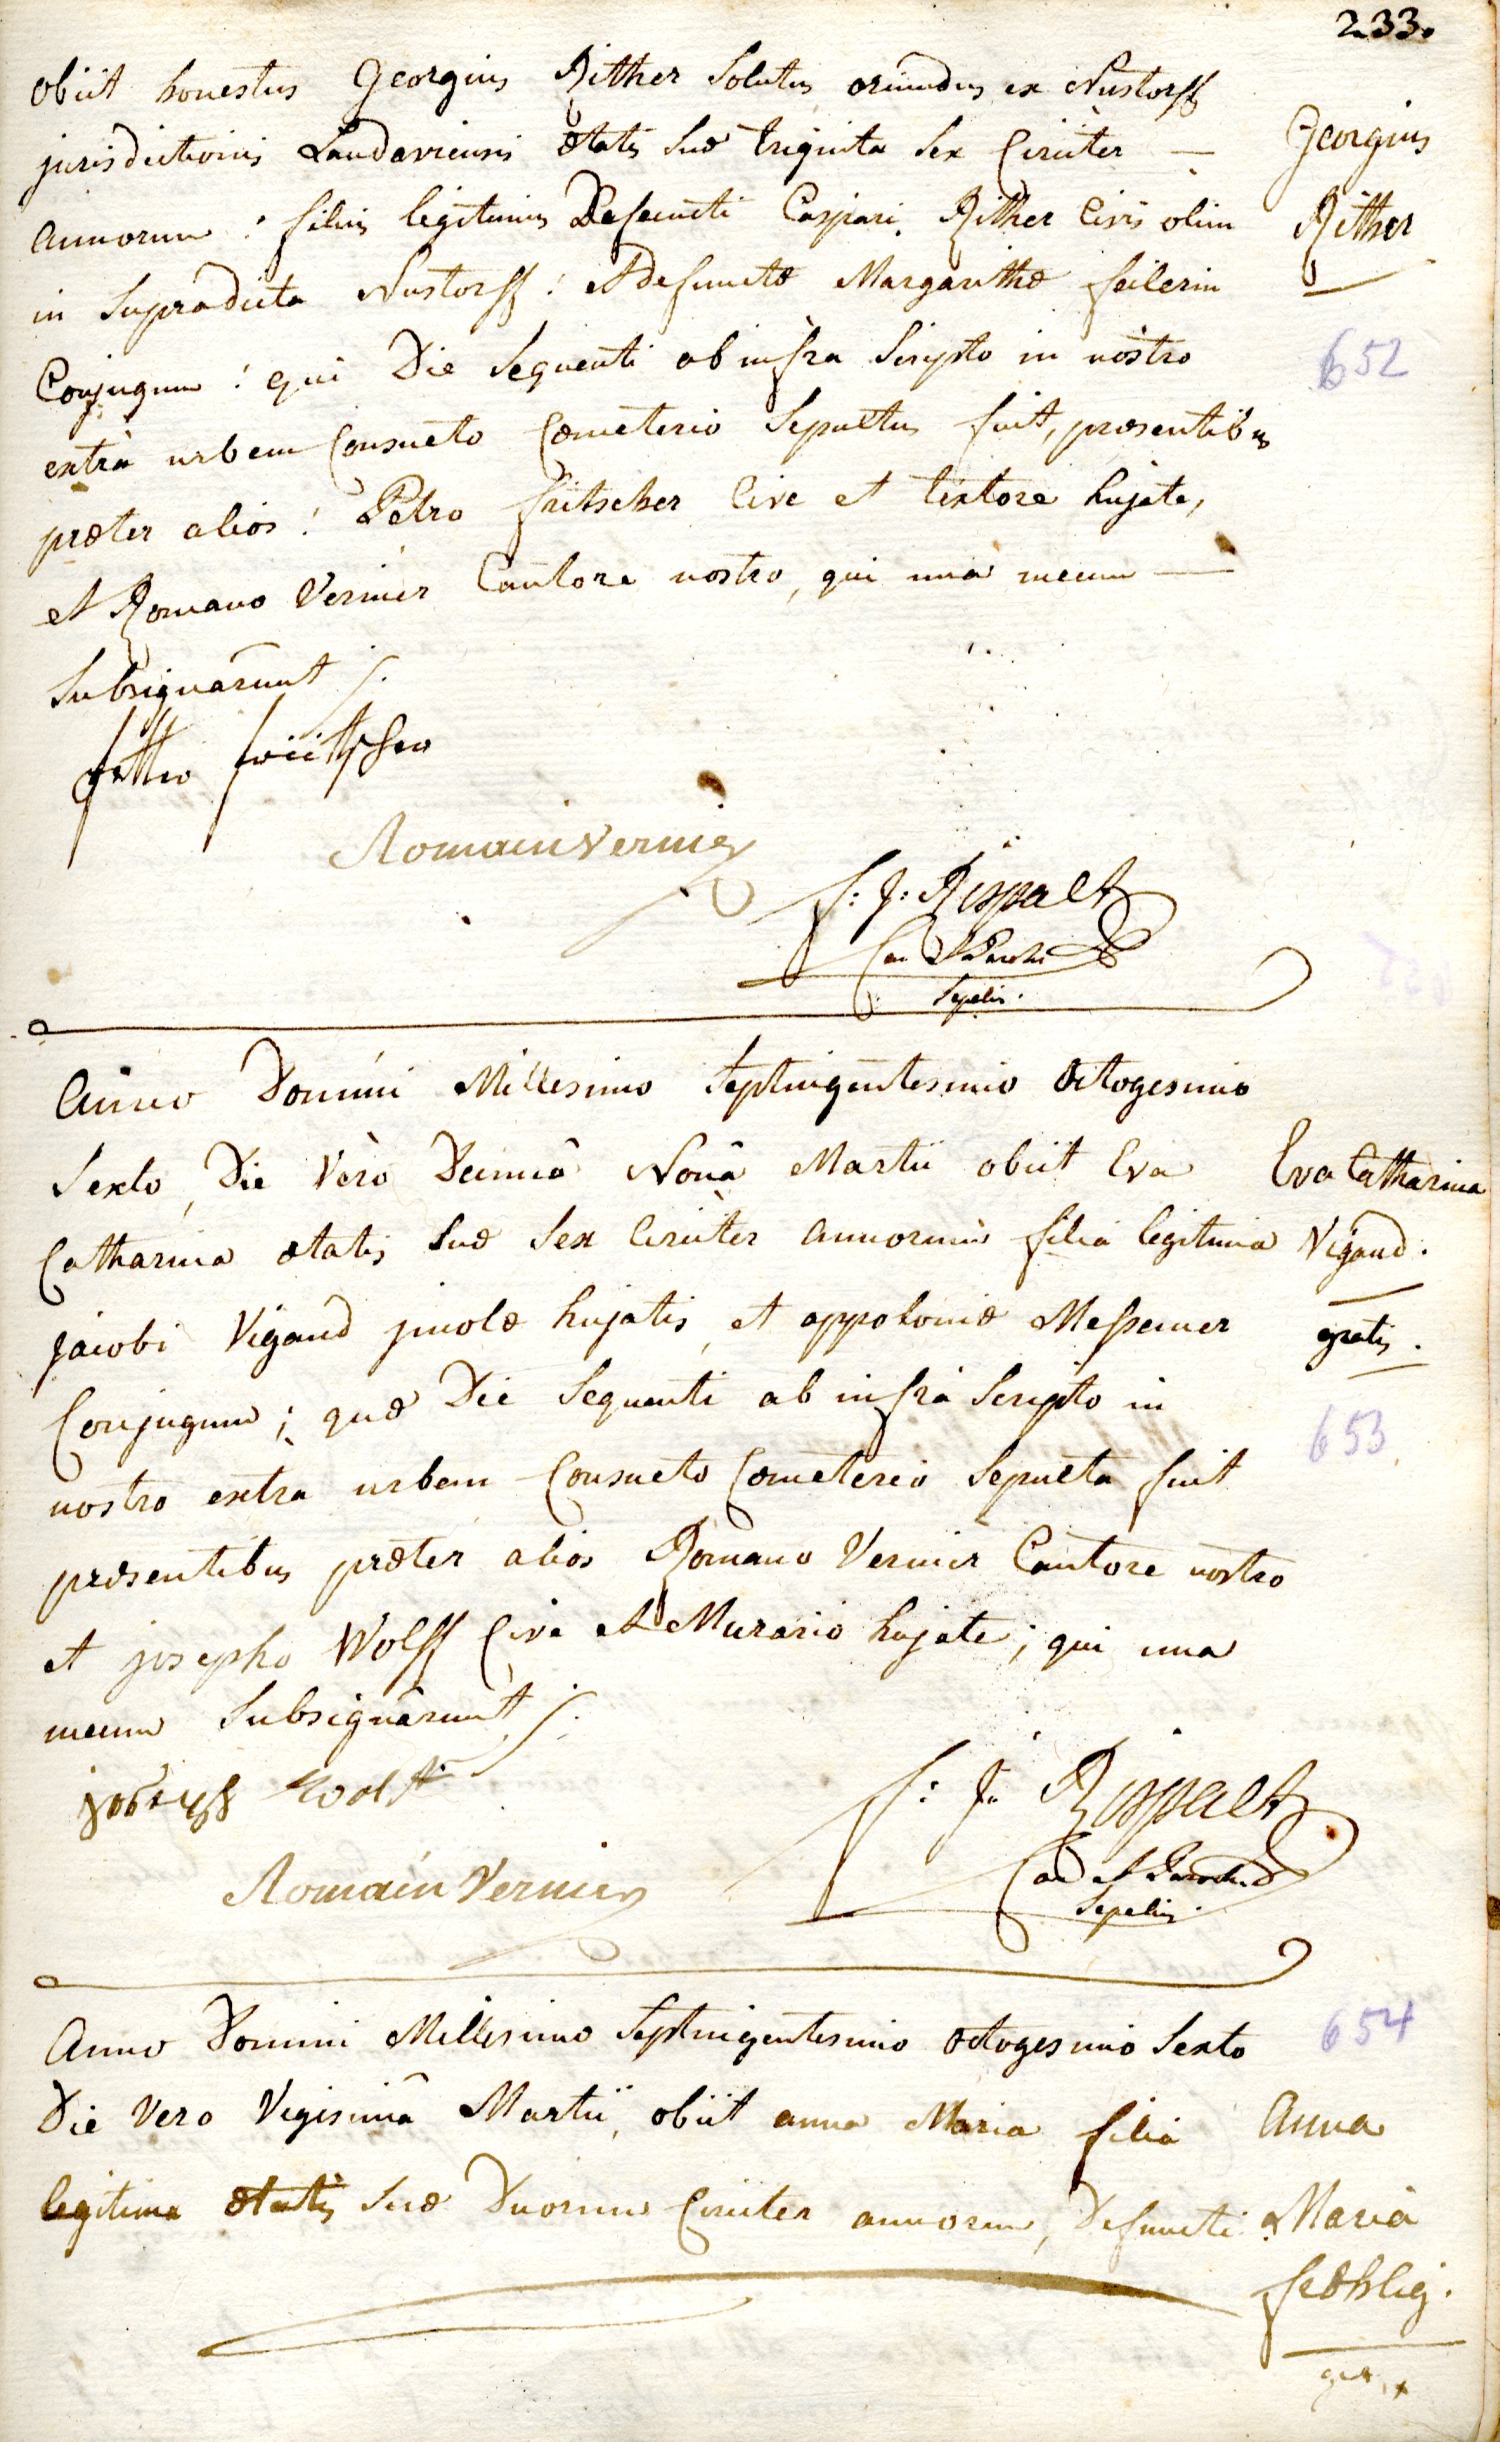 233.
obiit honestus Georgius Rither Solutus oriundus ex Nustorff
jurisdictionis Landaviensis ætatis suæ triginta sex Circiter —
annorum : filius legitimus Defuncti Caspari Rither Civis olim
in supradicta Nustorff : et defunctæ Margarithæ feilerin
Conjugum : qui Die Sequenti ab infra Scripto in nostro
extrà urbem Consueto Cœmeterio Sepultus fuit, præsentibus
præter alios : Petro fritscher Cive et textore hujate,
et Romano Vernier Cantore nostro, qui unà mecum —
Subsignârunt ·/.
Georgius
Rither
652
Romain Vernier
f: J: Rispalt
Can et Parochus
Sepelivi.
Anno Domini Millesimo Septingentesimo Octogesimo
Sexto, Die Vero Decimâ Nonâ Martii obiit Eva
Catharina ætatis Suæ Sex Circiter annorum filia legitima
jacobi Vigand jncolæ hujatis, et appoloniæ Messemer
Conjugum ; quæ Die Sequenti ab infrà Scripto in
nostro extra urbem Consueto Cœmeterio Sepulta fuit
præsentibus præter alios Romano Vernier Cantore nostro
et josepho Wolff Cive et Murario hujate ; qui una
mecum Subsignârunt ·/.
Eva Catharina
Vigand.
gratis.
653
joseph Wolff
Romain Vernier
f: J: Rispalt
Can et Parochus
Sepelivi.
Anno Domini Millesimo Septingentesimo octogesimo Sexto
Die Vero Vigesimâ Martii, obiit anna Maria filia
legitima ætatis Suæ Duorum Circiter annorum, Defuncti
654
Anna
Maria